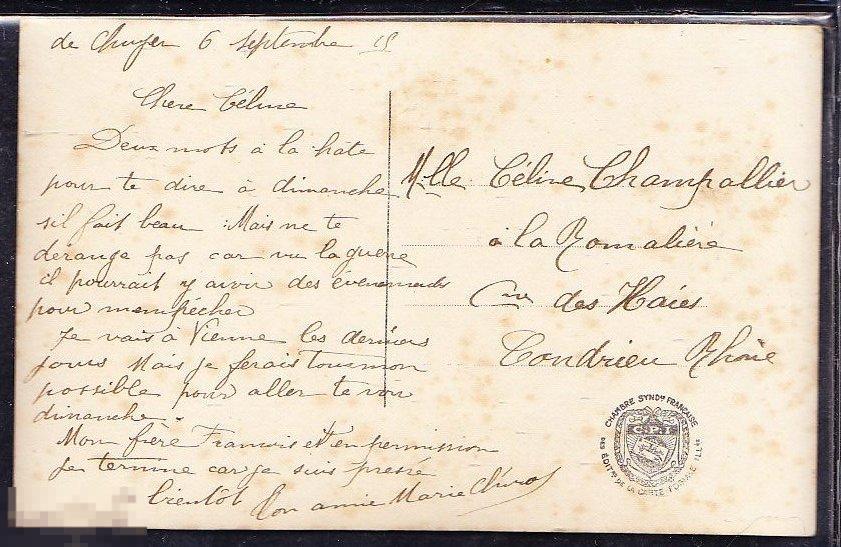 de Chuyer 6 septembre 15
Chere Céline
Deux mots à la hate
pour te dire à dimanche
sil fait beau. Mais ne te
derange pas car vu la guerre
il pourrait y avoir des évenements
pour mempécher
Je vais à Vienne les derniers
jours Mais je ferais tou mon
possible pour aller te voir
dimanche.
Mon frère Francois est en permission
Je termine car je suis pressé
bientôt Ton amie Marie
Mlle Céline Champallier
à la Romalière
Cne des Haies
Condrieu Rhône
CHAMBRE SYNDle FRANÇAISE
C.P.I
DES EDITrs DE LA CARTE POSTALE ILLée